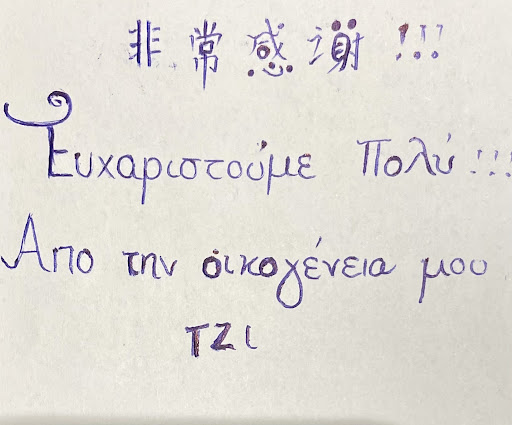 非常感谢!!!
Ευχαριστούμε Πολύ!!!
Απο την οικογένεια μου
ΤΖΙ